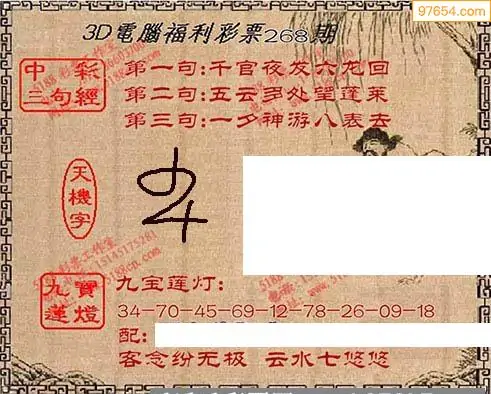 97654.com
3D電腦福利彩票268期
中彩
三句經
第一句:千官夜发六龙回
第二句:五云多处望蓬莱
第三句:一夕神游八表去
天機字
九寶
蓮燈
九宝莲灯:
34-70-45-69-12-78-26-09-18
配:
客念纷无极 云水七悠悠